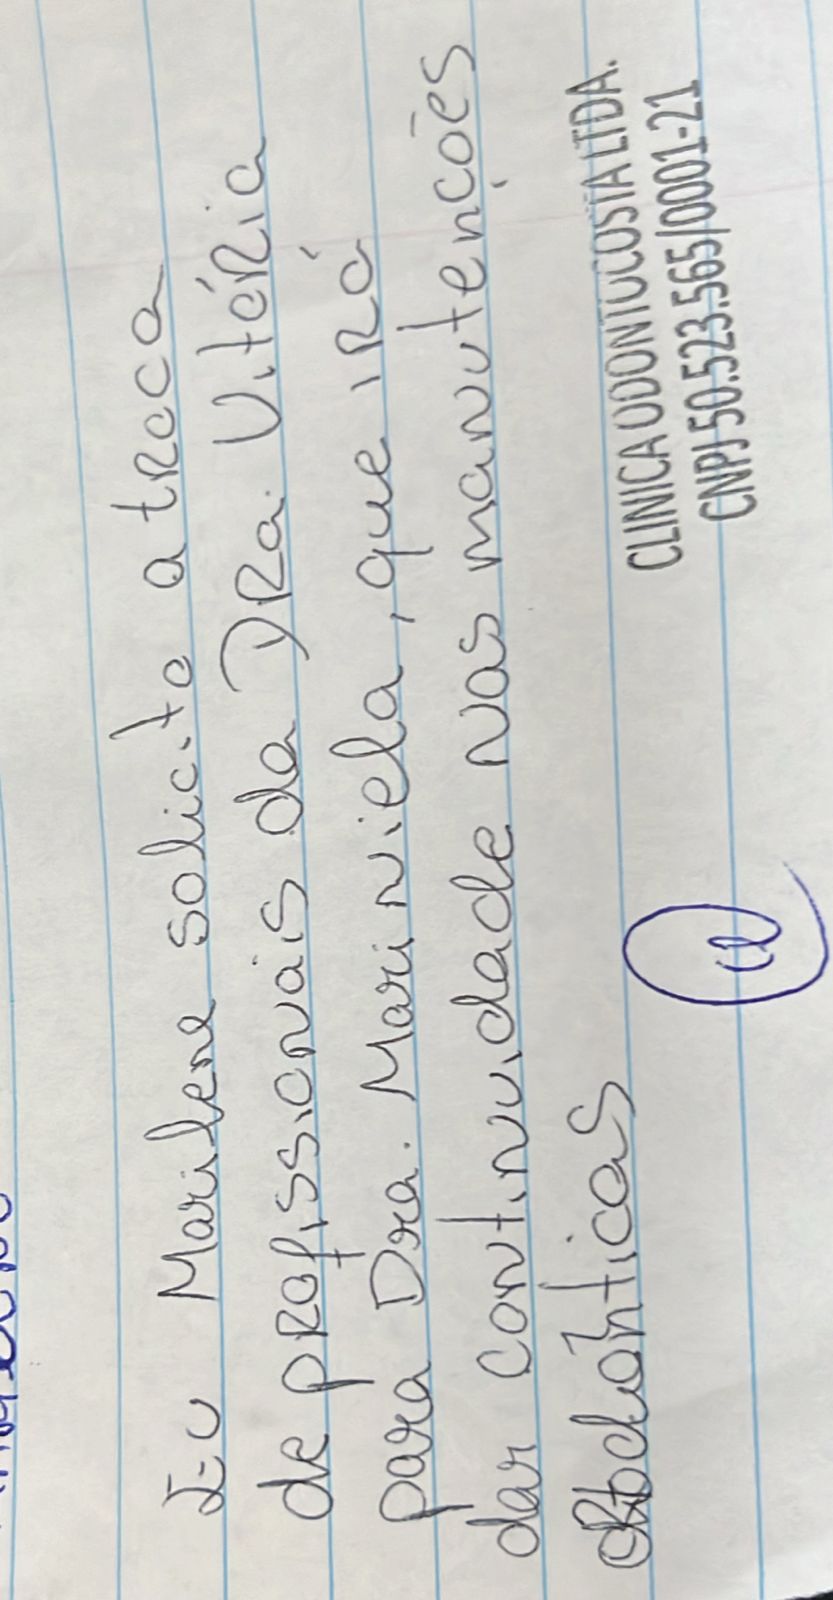 Eu Marilene solicito a troca
de profissionais da DRa. Vitória
para Dra. Mariniela, que irá
dar continuidade nas manutenções
ortodônticas
CLINICA ODONTOCOSTA LTDA.
CNPJ 50.523.565/0001-21